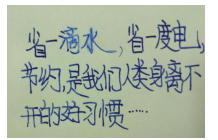 省一滴水,省一度电,
节约,是我们人类身离不
开的好习惯……